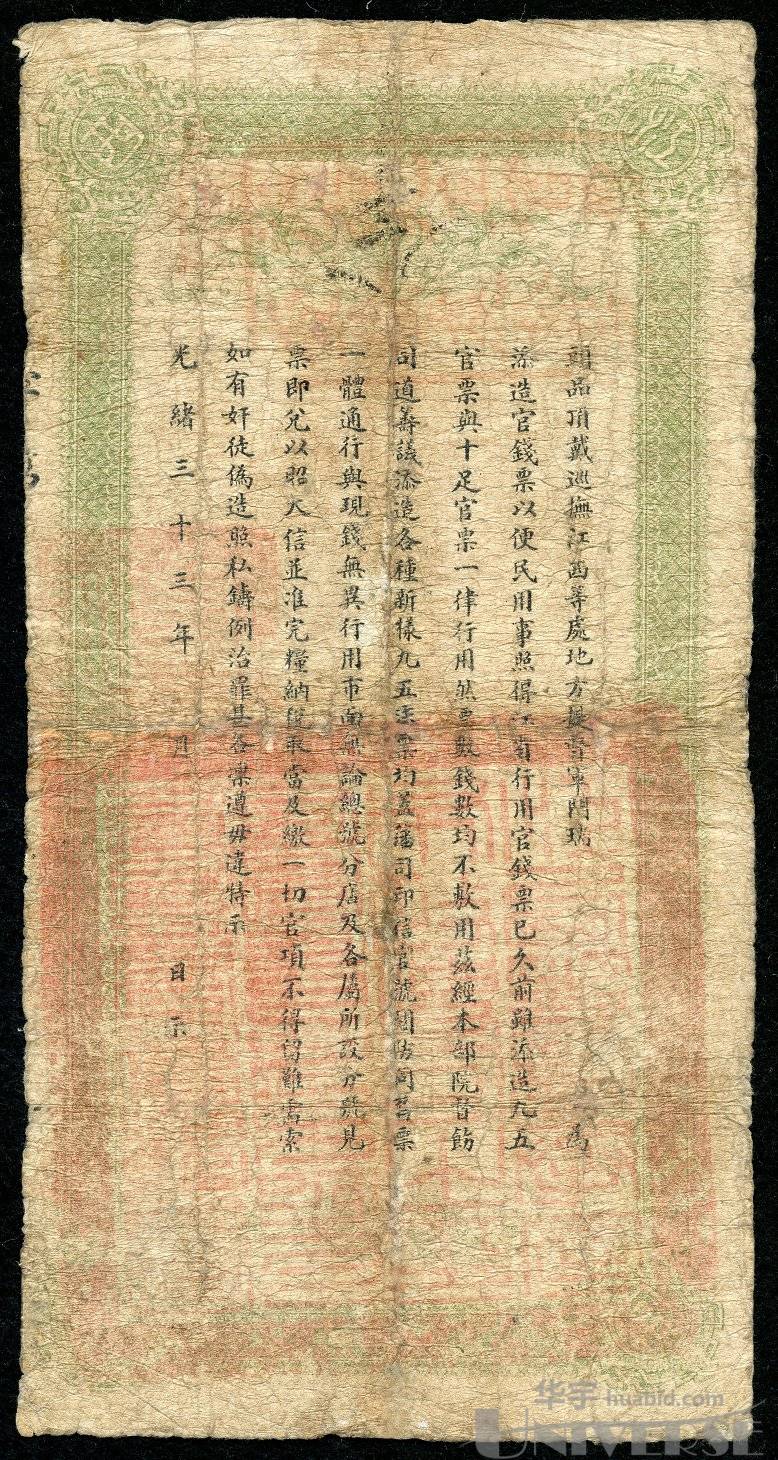 頭品頂戴巡撫江西等處地方提督軍門瑞 為
添造官錢票以便民用事照得江省行用官錢票已久前雖添造九五
官票與十足官票一律行用然票數錢數均不敷用茲經本部院督飭
司道籌議添造各種新樣九五官票均蓋藩司印信官號關防同舊票
一體通行與現錢無異行用市面無論總號分店及各屬所設分號見
票即兌以昭大信並准完糧納稅取當及繳一切官項不得留難需索
如有奸徒偽造照私鑄例治罪其各凜遵毋違特示
光緒三十三年 月 日示
华宇 huabid.com
UNIVERSE